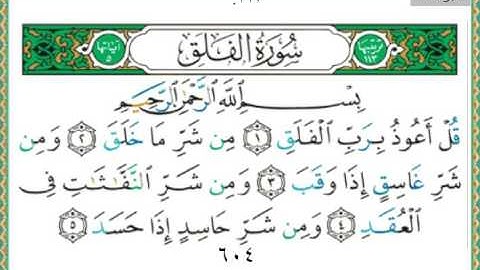 آياتها ٥ سُورَةُ الفَلَقِ ترتيبها ١١٣
بِسْمِ اللَّهِ الرَّحْمَٰنِ الرَّحِيمِ
قُلْ أَعُوذُ بِرَبِّ الْفَلَقِ ١ مِن شَرِّ مَا خَلَقَ ٢ وَمِن
شَرِّ غَاسِقٍ إِذَا وَقَبَ ٣ وَمِن شَرِّ النَّفَّاثَاتِ فِي
الْعُقَدِ ٤ وَمِن شَرِّ حَاسِدٍ إِذَا حَسَدَ ٥
٦٠٤